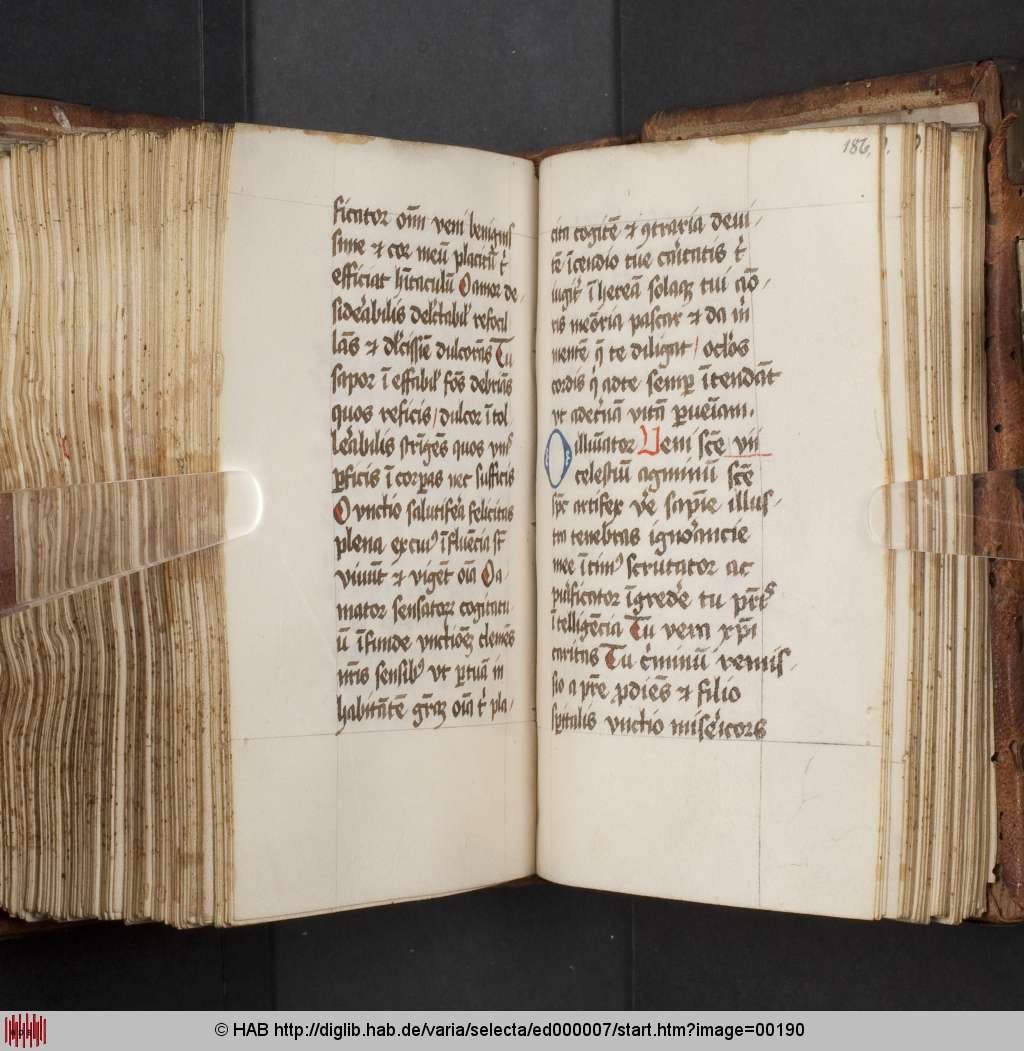 ficator om̄ veni benignis
sime & cor meū placitū t᷑
efficiat hītaculū O amor de-
sideᷓabilis delc̄tabil᷒ refocil
lās & dl᷑cissīe dulcorās Tu
sapor ī effabil᷒ fōs debriās
quos reficis / dulcor ī tol
leᷓabilis strīgēs quos vn᷒
ꝑficis ī corpas nec sufficis
O vnctio salutifeᷓa felicitas
plena ex cui᷒ īfluēcia st̄
viuūt & vigēt oīa O a-
mator sensatorꝝ cogitatu-
ū īfunde vnctiōeꝫ clemēs
nr̄is sensibꝫ vt ꝑ tuā in
habitātē gr̄aꝫ oīa t᷑ pla-
186.
cita cogitē & ꝯtraria deui-
tē īcendio tue caᷓitatis t᷑
iugit᷑ īhereā solaqꝫ tui aō-
ris meōria pascar & da m̄
mentē q̄ te diligat / ocl᷑os
cordis q̄ ad te semꝑ ītendāt
vt ad et᷑nā vitā ꝑueīam.
O illuīator Ueni sc̄e vii
celestiū agminū sc̄e
sp̄c artifex v᷑e sapīe illus-
tra tenebras ignoᷓancie
mee ītim᷒ scrutator ac
puᷓificator īgredeᷓe tu pr̄t᷒
ītelligēcia Tu vera xp̄i
caritas Tu c᷑minū remis-
sio a pr̄e ꝓdiēs & filio
sp̄italis vnctio miseᷓicors
© HAB http://diglib.hab.de/varia/selecta/ed000007/start.htm?image=00190